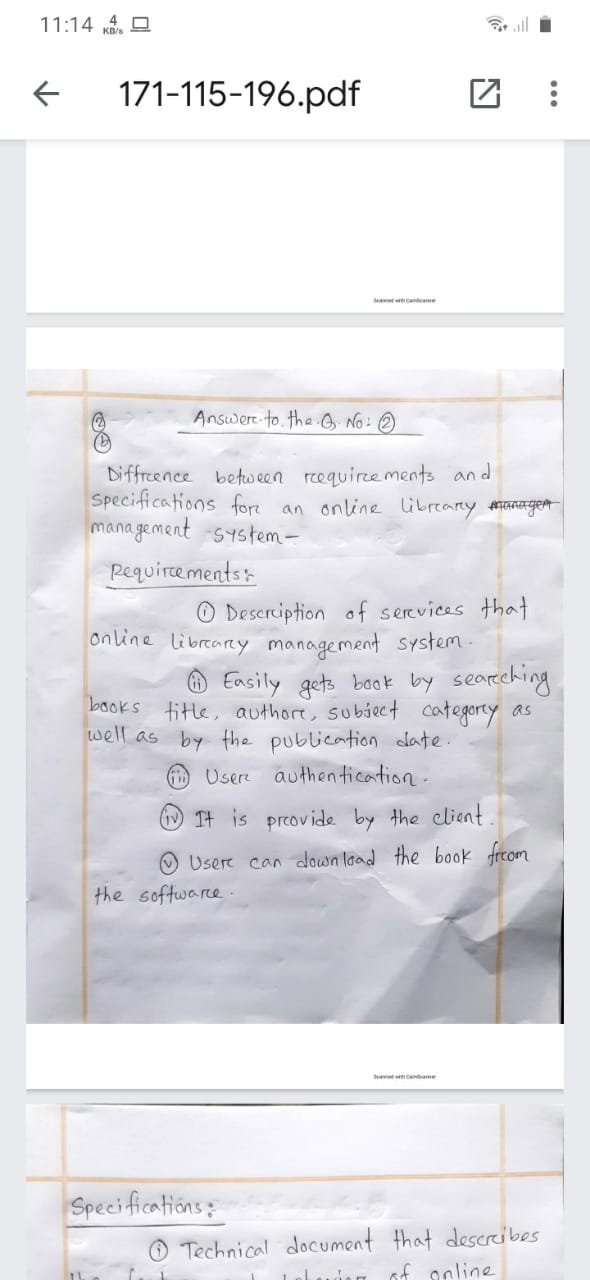 11:14 4 KB/s
171-115-196.pdf
Scanned with CamScanner
Answere to the Q. No: ②
②
ⓑ
Diffrence between requirements and
specifications for an online library managem
management system-
Requirements:
ⓘ Description of services that
online library management system.
ⓘⓘ Easily gets book by searching
books title, author, subject category as
well as by the publication date.
ⓘⓘⓘ User authentication.
ⓘⓥ It is provide by the client.
ⓥ User can download the book from
the software.
Scanned with CamScanner
Specifications:
ⓘ Technical document that describes
of online